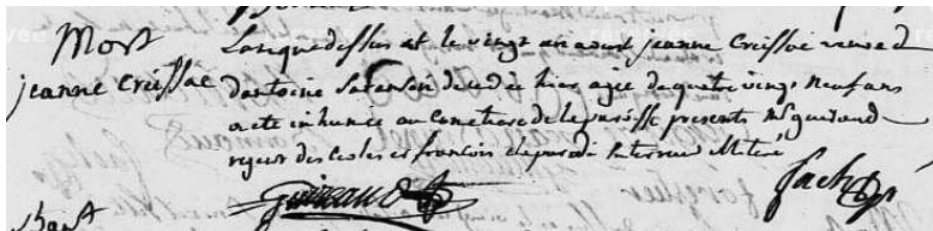 Mort
jeanne Creissac
Lan que dessus et le vingt un aout jeanne Creissac veuve
dantoine decedée hier agée de quatre vingt neuf ans
a été inhumée au cimetiere de la paroisse presents Mr guiraud
regent des Ecoles et francois
Guiraud
Bapt